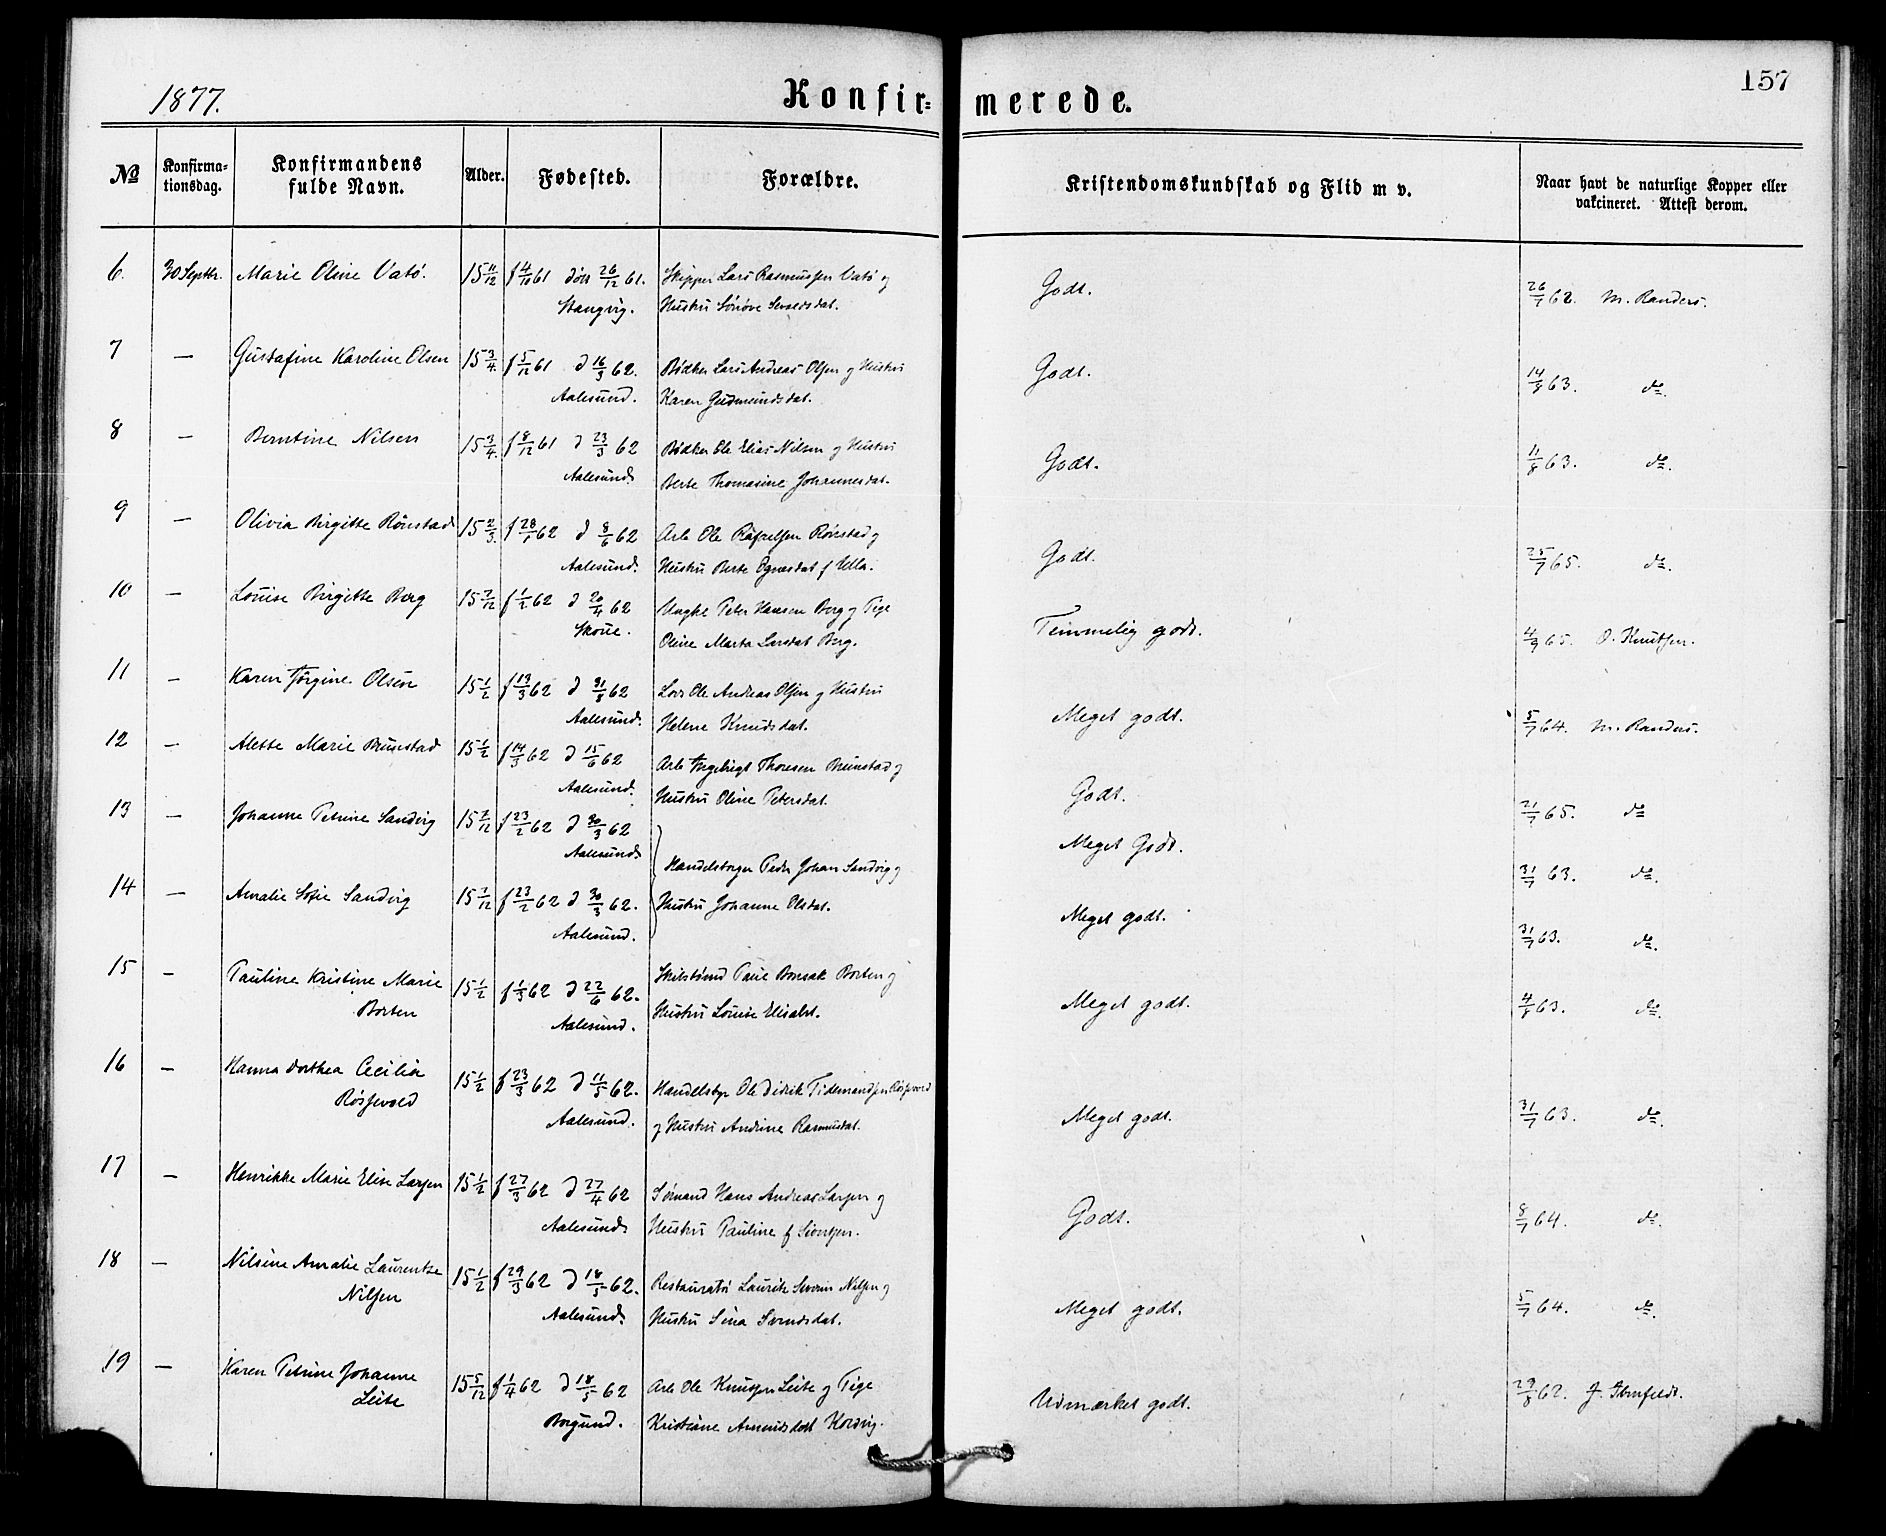 1877.
Konfir=
merede.
157
№
Konfirma=
tionsdag.
Konfirmandens
fulde Navn.
Alder.
Fødested.
Forældre.
Kristendomskundskab og Flid m v.
Naar havt de naturlige Kopper eller
vakcineret. Attest derom.
6. 30 Septbr. Marie Oline Vatö. 15 11/12 f 4/10 61 döb 26/12 61. Skipper Lars Rasmussen Vatö og
Stangvig. Hustru Sönöve Sevaldsdat.
Godt. 26/7 62. M. Randers.
7 — Gustafine Karoline Olsen 15 3/4. f 5/12 61 d 16/3 62. Bödker Lars Andreas Olsen og Hustru
Aalesund. Karen Gudmundsdat.
Godt. 14/8 63. do.
8 — Berntine Nilsen 15 3/4. f 8/12 61 d 23/3 62 Bödker Ole Elias Nilsen og Hustru
Aalesund Berte Thomasine Johannesdat.
Godt. 11/8 63. do.
9 — Olivia Birgitte Rönstad 15 2/3. f 28/1 62 d 8/6 62 Arb Ole Rönstad og
Aalesund. Hustru Berte f Ulla.
Godt. 25/7 65. do.
10 — Louise Birgitte Berg 15 7/12 f 1/2 62 d 20/4 62 Ungkl Peter Hansen Berg og Pige
Skoue. Oline Marta Larsdat Berg.
Temmelig godt. 4/9 65. O. Knutsen.
11 — Karen Jörgine Olsen 15 1/2 f 13/3 62 d 31/8 62 Lods Ole Andreas Olsen og Hustru
Aalesund. Helene Knudsdat.
Meget godt. 5/7 64. M. Randers.
12 — Alette Marie Brunstad 15 1/2 f 14/3 62 d 15/6 62 Arb Ingebrigt Thoresen Brunstad og
Aalesund. Hustru Oline Petersdat.
Godt. 21/7 65. do
13 — Johanne Petrine Sandvig 15 7/12 f 23/2 62 d 30/3 62
Aalesund
Meget Godt. 31/7 63. do.
Handelsborger Peder Johan Sandvig og
14 — Amalie Sofie Sandvig 15 7/12 f 23/2 62 d 30/3 62. Hustru Johanne Olsdat.
Aalesund.
Meget godt. 31/7 63. do.
15 — Pauline Kristine Marie 15 1/2 f 1/3 62 d 22/6 62. Paul Bonsak Borten og
Borten Aalesund. Hustru Louise Elisabet.
Meget godt. 4/8 63. do.
16 — Hanna Dorthea Cecilia 15 1/2 f 23/3 62 d 11/5 62. Handelsbgr Ole Didrik Tidemandsen Rösjevold
Rösjevold Aalesund. og Hustru Andrine Rasmusdat.
Meget godt. 31/7 63. do.
17 — Henrikke Marie Elise Larsen 15 1/2 f 27/3 62 d 27/4 62 Sömand Hans Andreas Larsen og
Aalesund Hustru Pauline f Sivertsen.
Godt. 8/7 64. do.
18 — Nilsine Amalie Laurentze 15 1/2 f 29/3 62 d 18/5 62. Restauratör Lauritz Severin Nilsen og
Nilsen Aalesund. Hustru Sina Svendsdat.
Meget godt. 5/7 64. do.
19 — Karen Petrine Johanne 15 5/12 f 1/4 62 d 18/5 62 Arb Ole Knutsen Leite og Pige
Leite Borgund. Kristiane Amundsdat
Udmærket godt. 29/8 62.